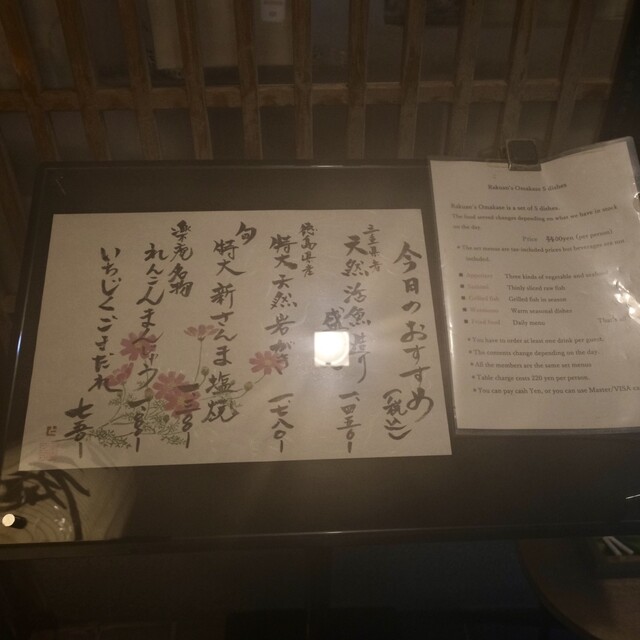 今日のおすすめ
(税込)
三重県産
天然活魚造り
一四三〇ー
徳島県産
特大天然岩がき
旬
特大新さんま塩焼
楽庵名物
れんこんまんじゅう
いちじくごまだれ
七五〇ー
Rakuan's Omakase 5 dishes
Rakuan's Omakase is a set of 5 dishes.
The food served changes depending on what we have in stock
on the day.
Price
yen (per person)
* The set menus are tax-included prices but beverages are not
included.
Three kinds of vegetable and seafood
Thinly sliced raw fish
Grilled fish
Grilled fish in season
Warm seasonal dishes
Fried food
Daily menu
* You have to order at least one drink per guest.
* The contents change depending on the day.
* All the members are the same set menus.
* Table charge costs 220 yen per person.
* You can pay cash Yen, or you can use Master/VISA